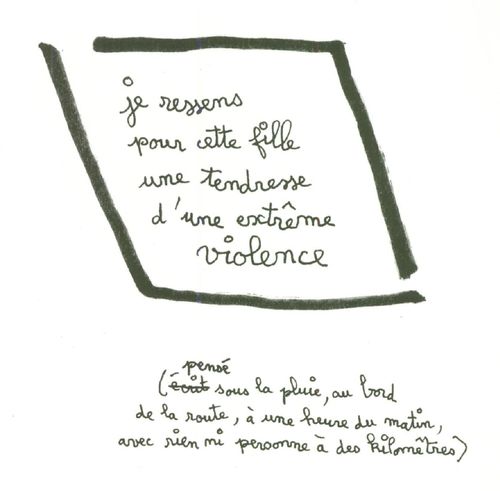 je ressens
pour cette fille
une tendresse
d'une extrême
violence
pensé
(écrit sous la pluie, au bord
de la route, à une heure du matin,
avec rien ni personne à des kilomètres)